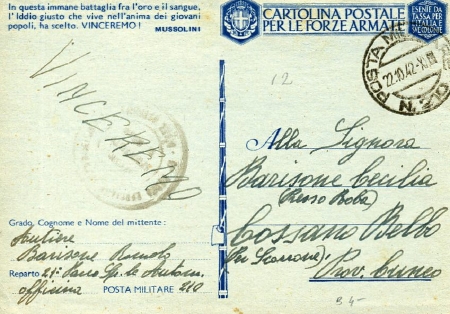 In questa immane battaglia fra l'oro e il sangue,
l'Iddio giusto che vive nell'anima dei giovani
popoli, ha scelto. VINCEREMO!
MUSSOLINI
CARTOLINA POSTALE
PER LE FORZE ARMATE
ESENTE DA
TASSA PER
L'ITALIA
E LE COLONIE
POSTA
22.10.42
N
12
VINCEREMO
Alla Signora
Barisone Cecilia
Cossano Belbo
Prov. Cuneo
Grado, Cognome e Nome del mittente:
Barisone
Reparto 21°
officina POSTA MILITARE 210
B 4-